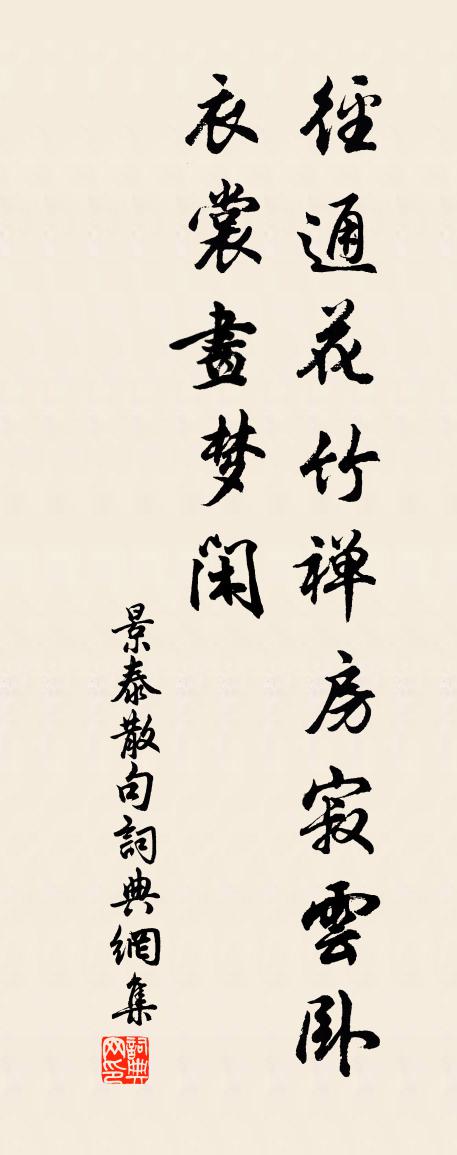 徑通花竹禅房寂雲卧
衣裳晝梦闲
景泰散句詞典網集
詞典网印